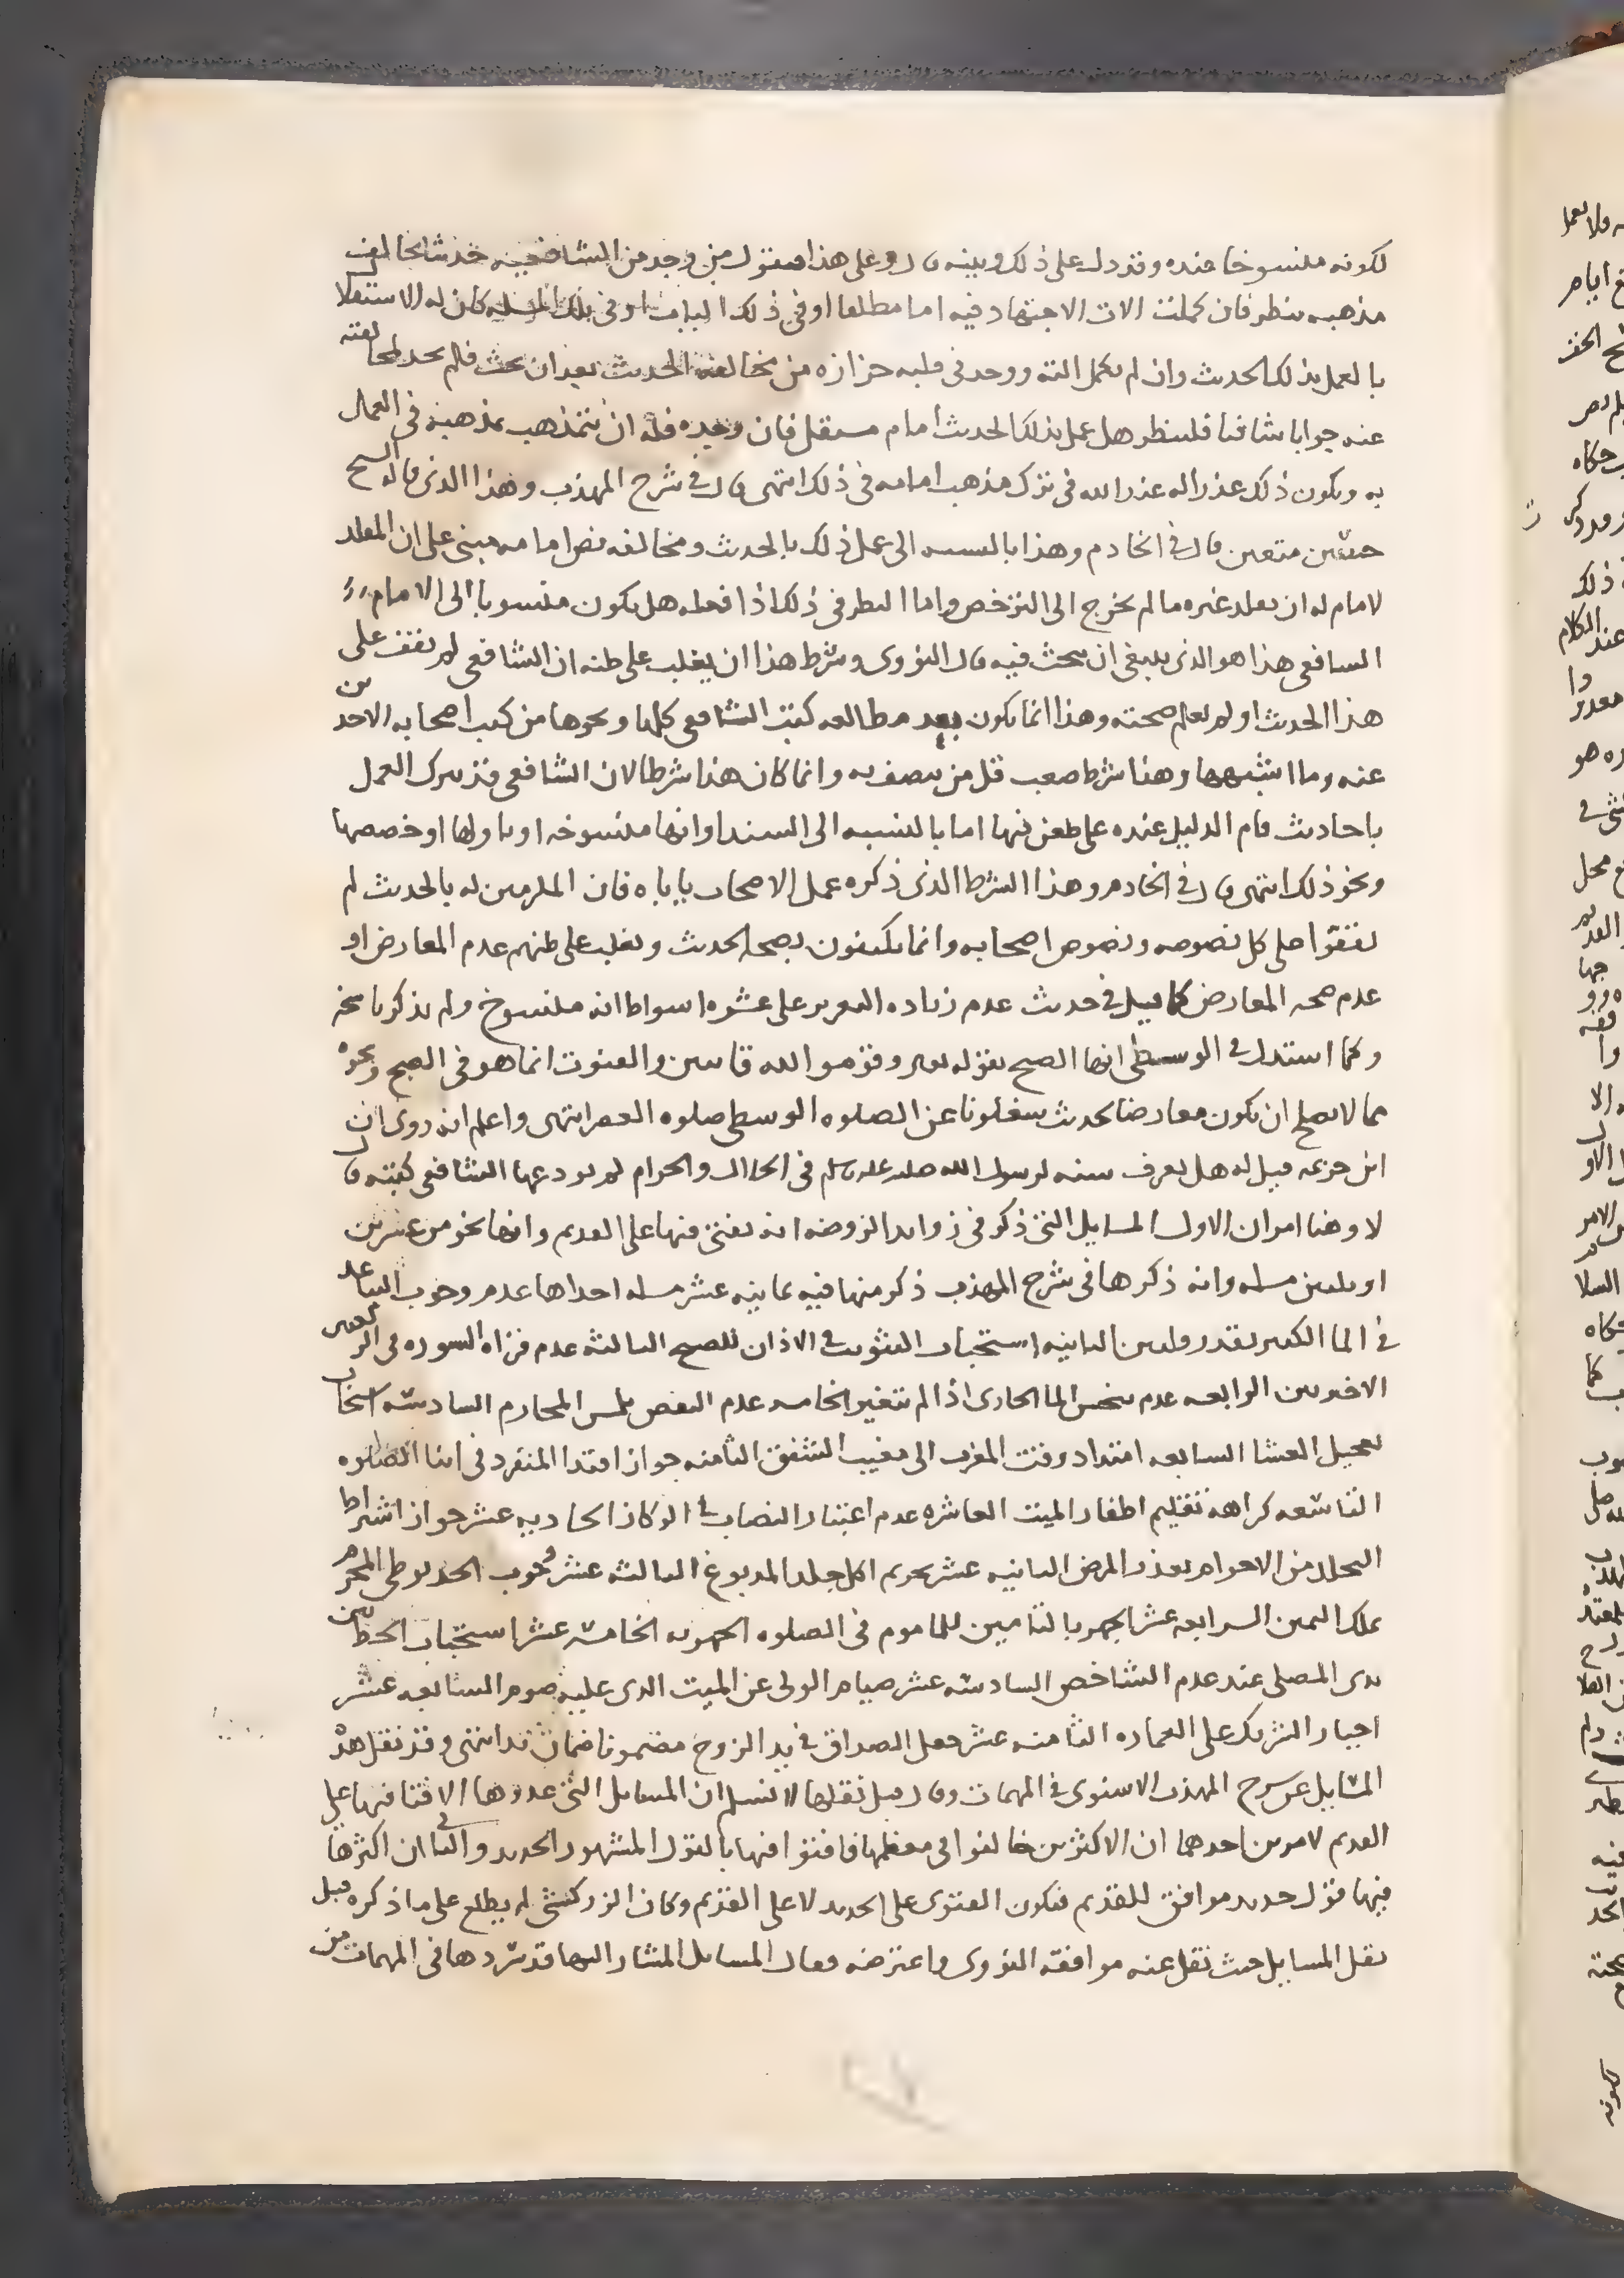 لكونه منسوخا عنده وقد دل على ذلك وبينه قال وعلى هذا فنقول من وجد من الشافعيه حديثا يخالف
مذهبه ينظر فان كملت الات الاجتهاد فيه اما مطلقا او في ذلك الباب او في تلك المسله كان له الاستقلا
بالعمل بذلك الحديث وان لم تكمل الته ووجد في قلبه حزازه من مخالفه الحديث بعد ان بحث فلم يجد لمخالفته
عنه جوابا شافيا فلينظر هل عمل بذلك الحديث امام مستقل فان وجده فله ان يتمذهب بمذهبه في العمل
به ويكون ذلك عذرا له عند الله في ترك مذهب امامه في ذلك انتهى قال في شرح المهذب وهذا الذي قاله الشيخ
حسن متعين قال في الخادم وهذا بالنسبه الى عمل ذلك بالحديث ومخالفه نص امامه مبني على ان المقلد
لامام له ان يقلد غيره ما لم يخرج الى الترخص واما النظر في ذلك اذا فعله هل يكون منسوبا الى الامام
الشافعي هذا هو الذي ينبغي ان يبحث فيه قال النووي وشرط هذا ان يغلب على ظنه ان الشافعي لم يقف على
هذا الحديث او لم يعلم صحته وهذا انما يكون بعد مطالعه كتب الشافعي كلها ونحوها من كتب اصحابه الاخذين
عنه وما اشبهها وهذا شرط صعب قل من يتصف به وانما كان هذا شرطا لان الشافعي قد ترك العمل
باحاديث قام الدليل عنده على طعن فيها اما بالنسبه الى السند او انها منسوخه او تاولها او خصصها
ونحو ذلك انتهى قال في الخادم وهذا الشرط الذي ذكره عمل الاصحاب ياباه فان الملزمين له بالحديث لم
يقفوا على كل نصوصه ونصوص اصحابه وانما يكتفون بصحه الحديث ويغلب على ظنهم عدم المعارض او
عدم صحه المعارض كما قيل في حديث عدم زياده التعزير على عشره اسواط انه منسوخ ولم يذكر ناسخه
وكما استدل في الوسطى انها الصبح بقوله تعالى وقوموا لله قانتين والقنوت انما هو في الصبح ونحوه
مما لا يصلح ان يكون معارضا لحديث شغلونا عن الصلوه الوسطى صلوه العصر انتهى واعلم انه روى ان
ابن خزيمه قيل له هل يعرف سنه لرسول الله صلى الله عليه وسلم في الحلال والحرام لم يودعها الشافعي كتبه قال
لا وهنا امران الاول المسايل التي ذكر في زوايد الروضه انه يفتى فيها على القديم وانها نحو من عشرين
او ثلثين مسله وانه ذكرها في شرح المهذب ذكر منها فيه ثمانيه عشر مسله احداها عدم وجوب التباعد
في الما الكثير بقدر قلتين الثانيه استحباب التثويب في الاذان للصبح الثالثه عدم قراه السوره في الركعتين
الاخيرتين الرابعه عدم تنجس الما الجاري اذا لم يتغير الخامسه عدم النقض بلمس المحارم السادسه استحباب
تعجيل العشا السابعه امتداد وقت المغرب الى مغيب الشفق الثامنه جواز اقتدا المنفرد في اثنا الصلوه
التاسعه كراهه تقليم اظفار الميت العاشره عدم اعتبار النصاب في الركاز الحاديه عشر جواز اشتراط
التحلل من الاحرام بعذر المرض الثانيه عشر تحريم اكل جلد المدبوغ الثالثه عشر وجوب الحد بوطي المحرم
بملك اليمين الرابعه عشر الجهر بالتامين للماموم في الصلوه الجهريه الخامسه عشر استحباب الخط بين
يدى المصلى عند عدم الشاخص السادسه عشر صيام الولى عن الميت الذى عليه صوم السابعه عشر
اجبار الشريك على العماره الثامنه عشر جعل الصداق في يد الزوج مضمونا ضمان يد انتهى وقد نقل هذه
المسايل عن شرح المهذب الاسنوى في المهمات وقال قبل نقلها لا نسلم ان المسايل التي عدوها الافتا فيها على
القديم لامرين احدهما ان الاكثرين خالفوا في معظمها فافتوا فيها بالقول المشهور الجديد والثاني ان اكثرها
فيها قول جديد موافق للقديم فتكون الفتوى على الجديد لا على القديم وكان الزركشي لم يطلع على ما ذكره قبل
نقل المسايل حيث نقل عنه موافقه النووى واعترضه فقال المسايل المشار اليها قد سردها في المهمات من